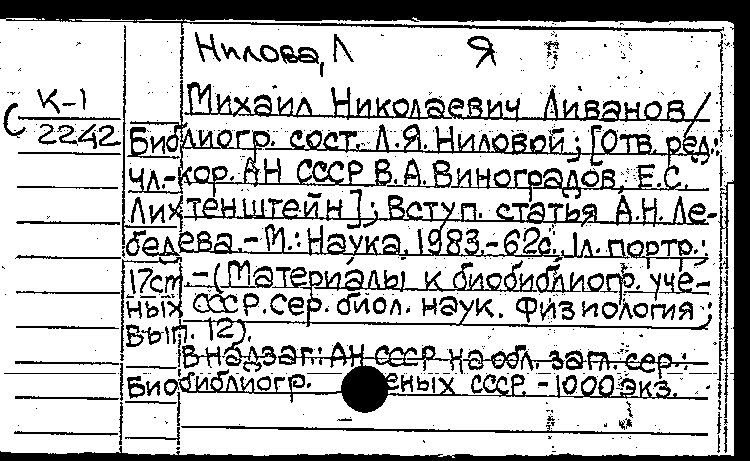 Нилова, Л Я
С К-1
2242
Михаил Николаевич Ливанов /
Библиогр. сост. Л.Я. Ниловой; [Отв. ред.:
чл.-кор. АН СССР В.А. Виноградов, Е.С.
Лихтенштейн]; Вступ. статья А.Н. Ле-
бедева. - М.: Наука, 1983. - 62с., 1л. портр.;
17см. - (Материалы к биобиблиогр. уче-
ных СССР. Сер. биол. наук. Физиология;
Вып. 12).
В надзаг.: АН СССР На обл. загл. сер.:
Биобиблиогр. еных СССР. - 1000 экз.